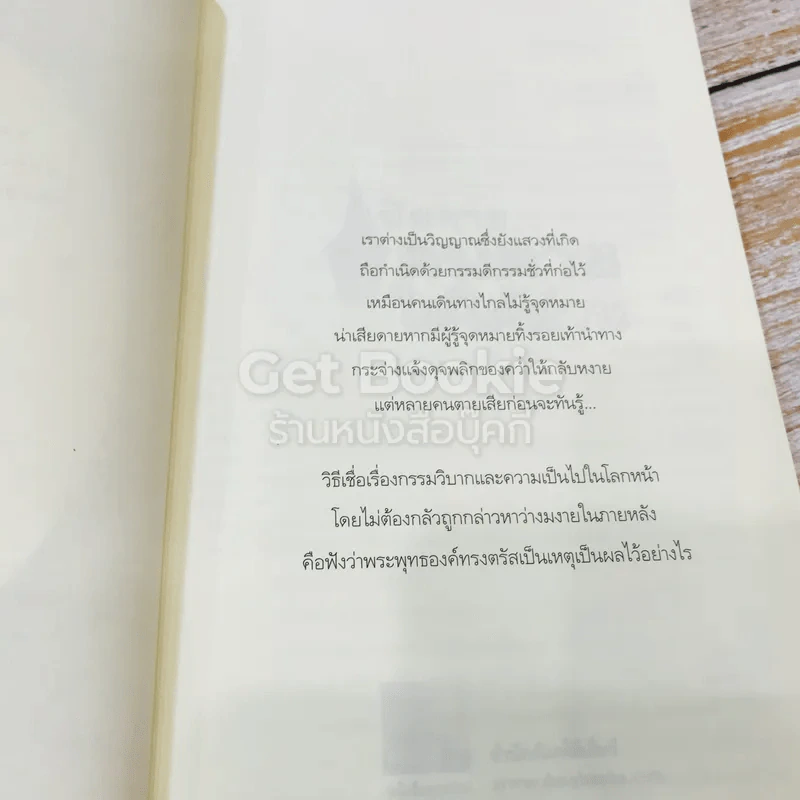 เราต่างเป็นวิญญาณซึ่งยังแสวงที่เกิด
ถือกำเนิดด้วยกรรมดีกรรมชั่วที่ก่อไว้
เหมือนคนเดินทางไกลไม่รู้จุดหมาย
น่าเสียดายหากมีผู้รู้จุดหมายทิ้งรอยเท้านำทาง
กระจ่างแจ้งดุจพลิกของคว่ำให้กลับหงาย
Get Bookie
แต่หลายคนตายเสียก่อนจะทันรู้...
ร้านหนังสือบุ๊คกี้
วิธีเชื่อเรื่องกรรมวิบากและความเป็นไปในโลกหน้า
โดยไม่ต้องกลัวถูกกล่าวหาว่างมงายในภายหลัง
คือฟังว่าพระพุทธองค์ทรงตรัสเป็นเหตุเป็นผลไว้อย่างไร